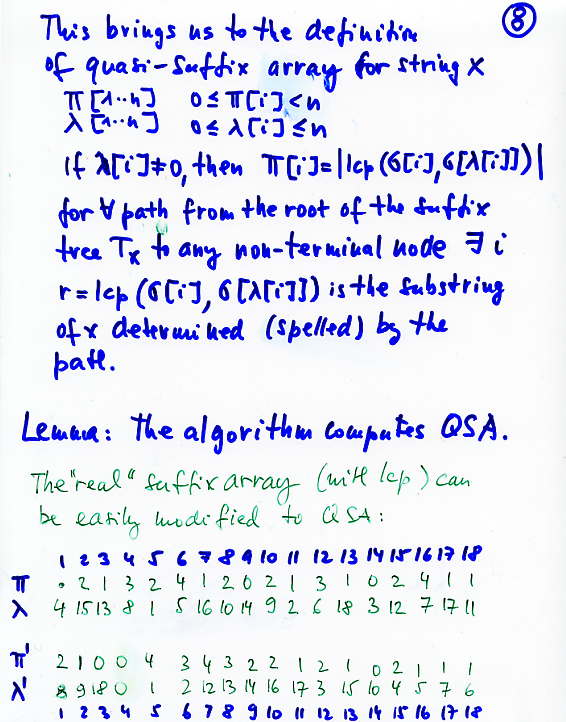 ⑧
This brings us to the definition
of quasi-suffix array for string x
π[1··n]   0≤π[i]<n
λ[1··n]   0≤λ[i]≤n
if λ[i]≠0, then π[i]=|lcp(σ[i],σ[λ[i]])|
for ∀ path from the root of the suffix
tree Tx to any non-terminal node ∃ i
r=lcp(σ[i], σ[λ[i]]) is the substring
of x determined (spelled) by the
path.
Lemma: The algorithm computes QSA.
The "real" suffix array (with lcp) can
be easily modified to QSA:
1 2 3 4 5 6 7 8 9 10 11 12 13 14 15 16 17 18
π • 2 1 3 2 4 1 2 0 2 1 3 1 0 2 4 1 1
λ 4 15 13 8 1 5 16 10 14 9 2 6 18 3 12 7 17 11
π' 2 1 0 0 4 3 4 3 2 2 1 2 1 0 2 1 1 1
λ' 8 9 18 0 1 2 12 13 14 16 17 3 15 10 4 5 7 6
1 2 3 4 5 6 7 8 9 10 11 12 13 14 15 16 17 18